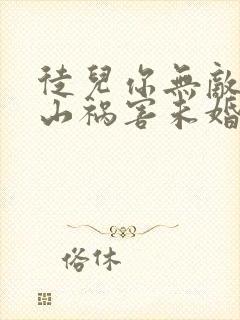 徒兒你無敵
山禍害未婚
俗休